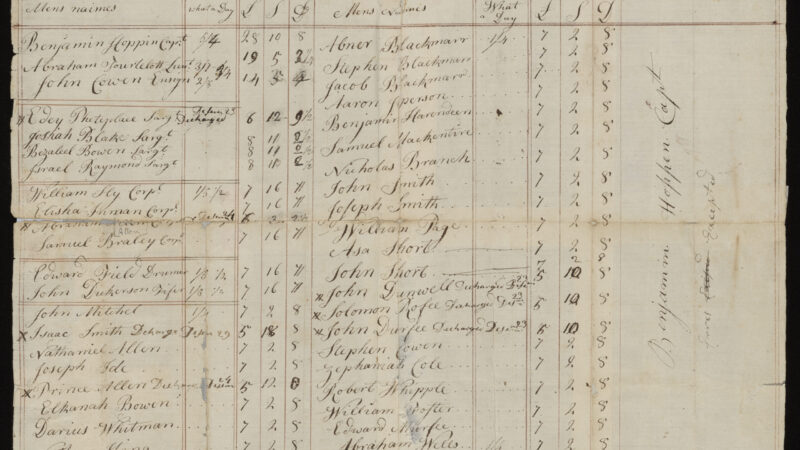 Mens naimes what a Day £ S D
Benjamin Hoppin Capt 5/4 28 10 8
Abraham Tourtelott Lieut 3/7 19 5 2½
John Cowen Ensyn 2/8 14 3 4
x Edey Phetiplace Sargt Discharged 6 12 9½
Josiah Blake Sargt 8 11 2½
Bezaleel Bowen Sargt 8 11 2½
Israel Raymond Sargt 8 11 2½
William Sly Corpl 1/5½ 7 16 11
Elisha Inman Corpl 7 16 11
x Abraham Corpl 6 2 2½
Allen
Samuel Braley Corpl 7 16 11
Edward Field Drumer 1/5½ 7 16 11
John Dickerson Fifer 1/5½ 7 16 11
John Mitchel 1/4 7 2 8
x Isaac Smith Discharge Desem 29 5 18 8
Nathaniel Allen 7 2 8
Joseph Ide 7 2 8
x Prince Allen 5 12 0
Elkanah Bowen 7 2 8
Darius Whitman 7 2 8
7 2 8
Mens Naimes What a Day £ S D
Abner Blackmarr 1/4 7 2 8
Stephen Blackmarr 7 2 8
Jacob Blackmarr 7 2 8
Aaron Jperson 7 2 8
Benjamin Harendeen 7 2 8
Samuel Mackentire 7 2 8
Nicholas Branch 7 2 8
John Smith 7 2 8
Joseph Smith 7 2 8
William Page 7 2 8
Asa Short 7 2 8
John Short 7 2 8
x John Dunwell Discharged 5 10 8
x Solomon Rofee Discharged 5 10 8
x John Durfee Discharged Desem 23 5 10 8
Stephen Cowen 7 2 8
Zephaniah Cole 7 2 8
Robert Whipple 7 2 8
William Foster 7 2 8
Edward Murfee 7 2 8
Abraham Weles 7 2 8
Benjamin Hoppen Capt
Excepted